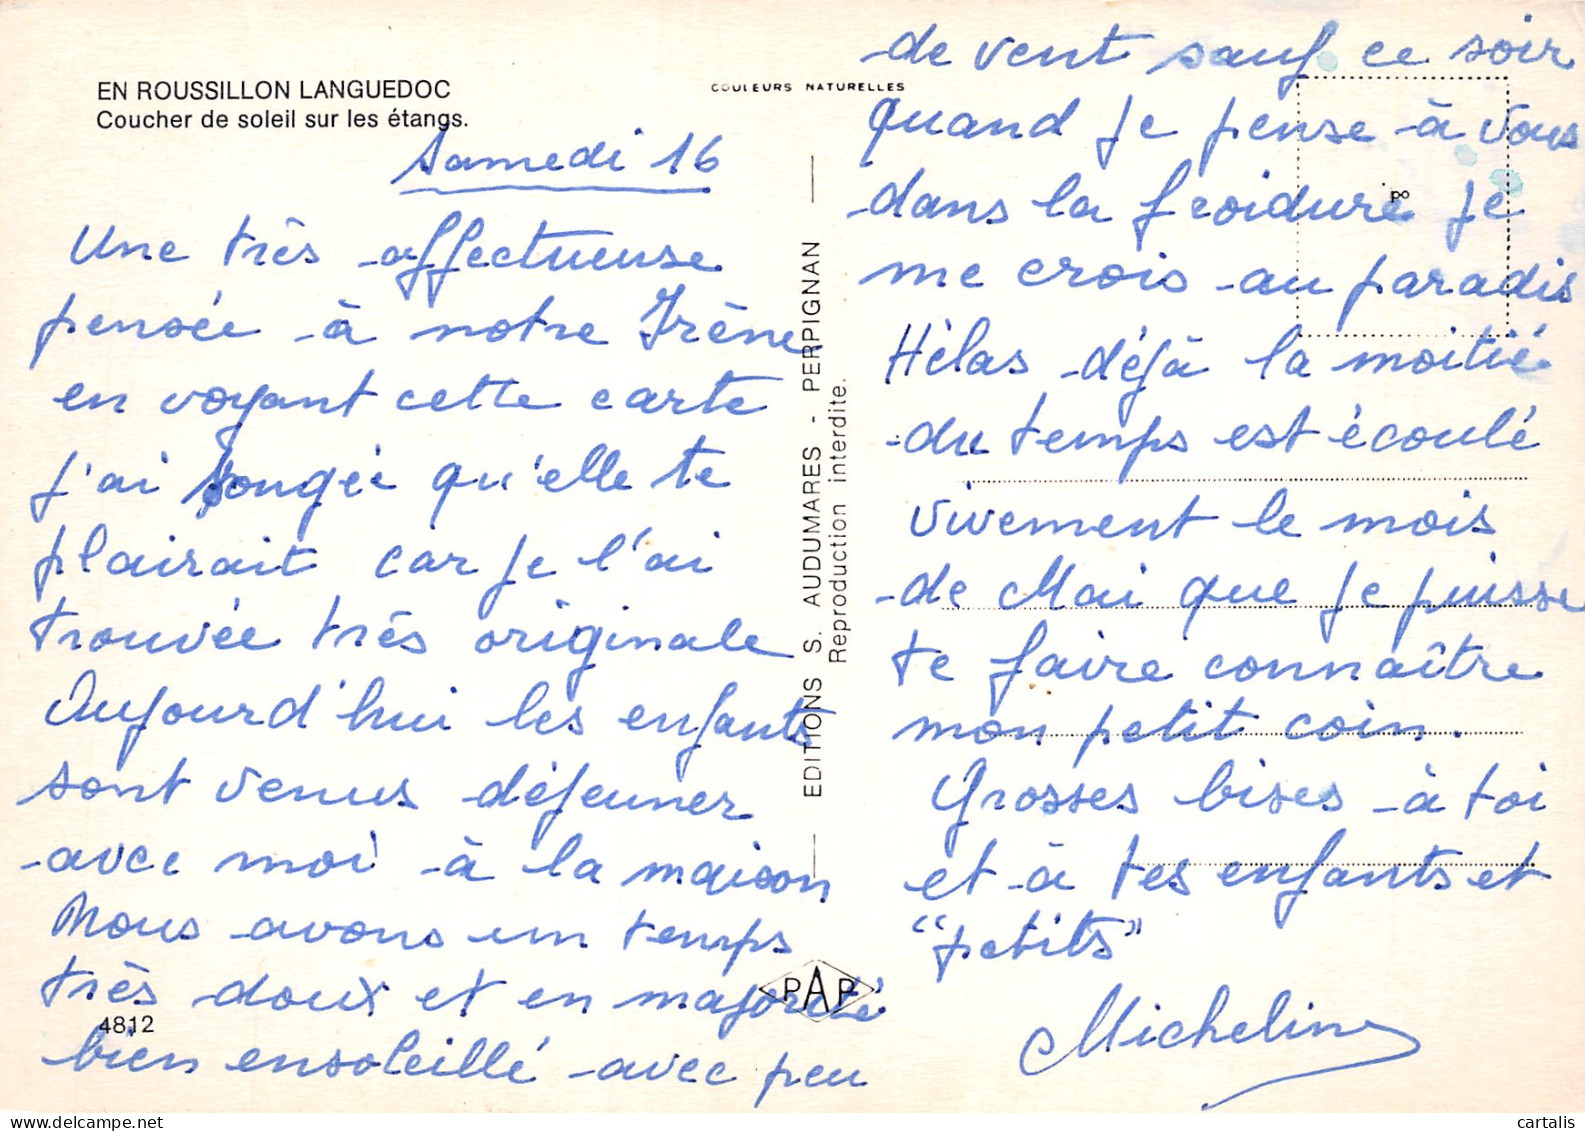 EN ROUSSILLON LANGUEDOC
Coucher de soleil sur les étangs.
COULEURS NATURELLES
Samedi 16
Une très affectueuse
pensée à notre Irène
en voyant cette carte
j'ai songée qu'elle te
plairait car je l'ai
trouvée très originale
Aujourd'hui les enfants
sont venus déjeuner
avec moi à la maison
Nous avons un temps
très doux et en majorité
bien ensoleillé avec peu
4812
EDITIONS S. AUDUMARES - PERPIGNAN
Reproduction interdite.
PAP
de vent sauf ce soir
quand je pense à vous
dans la froidure je
me crois au paradis
Hèlas déjà la moitié
du temps est écoulé
vivement le mois
de Mai que je puisse
te faire connaître
mon petit coin.
Grosses bises à toi
et à tes enfants et
"petits"
Micheline
cartalis